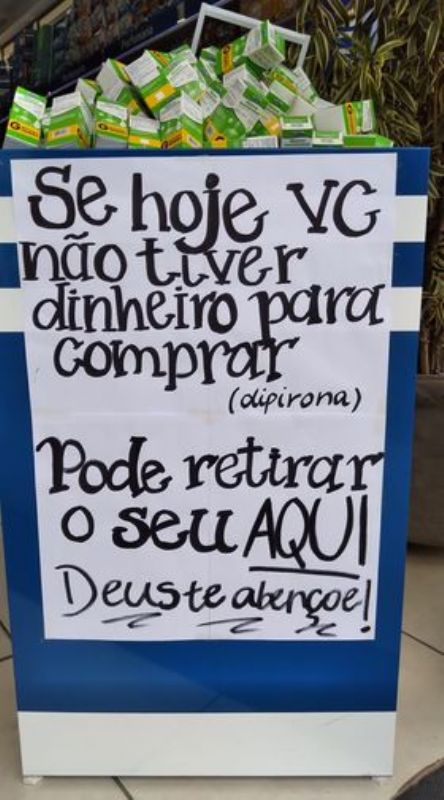 Se hoje VC
não tiver
dinheiro para
comprar
(dipirona)
Pode retirar
o seu AQUI
Deus te abençoe!